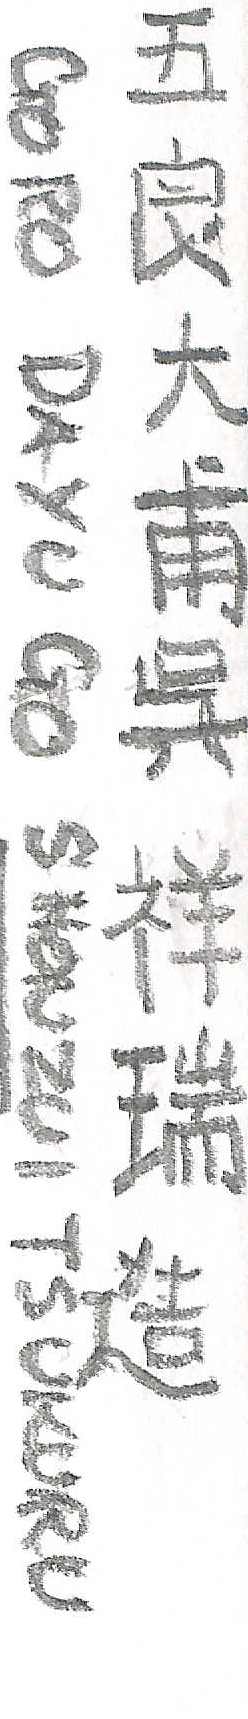 五良大甫呉祥瑞造
GORO DAYU GO SHONZUI TSUKURU